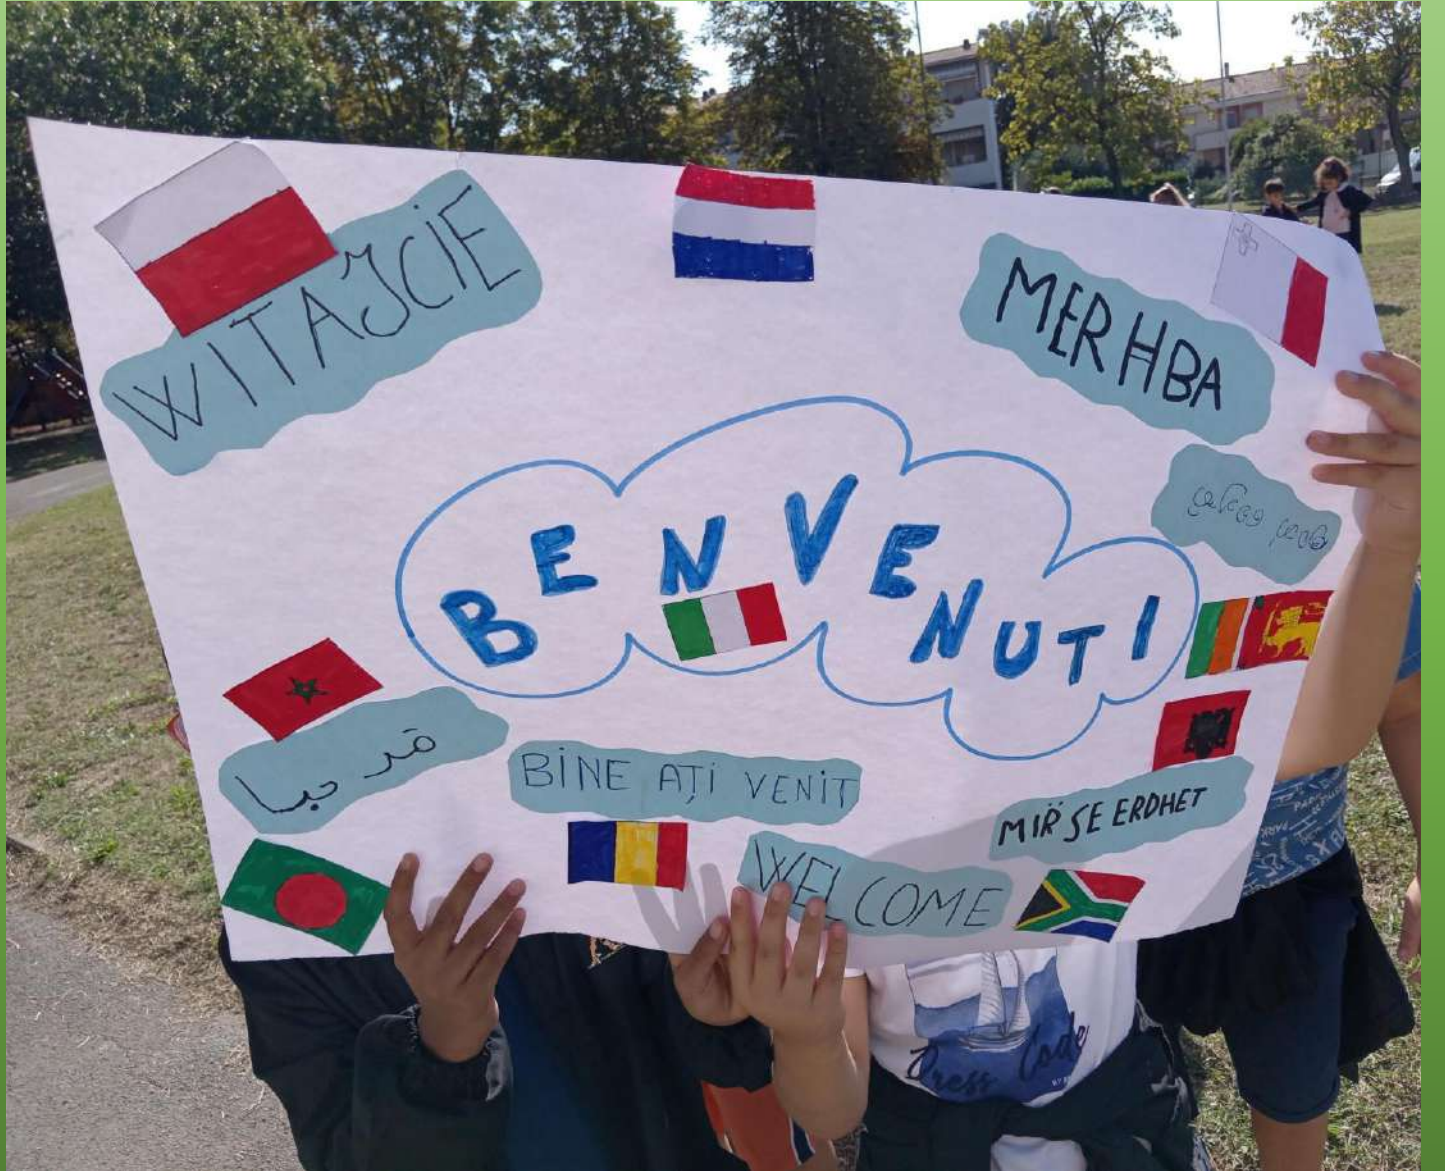 WITAJCIE
MERHBA
BENVENUTI
مَر حبا
BINE AȚI VENIT
MIR̈ SE ERDHET
WELCOME
Press Code
PARK